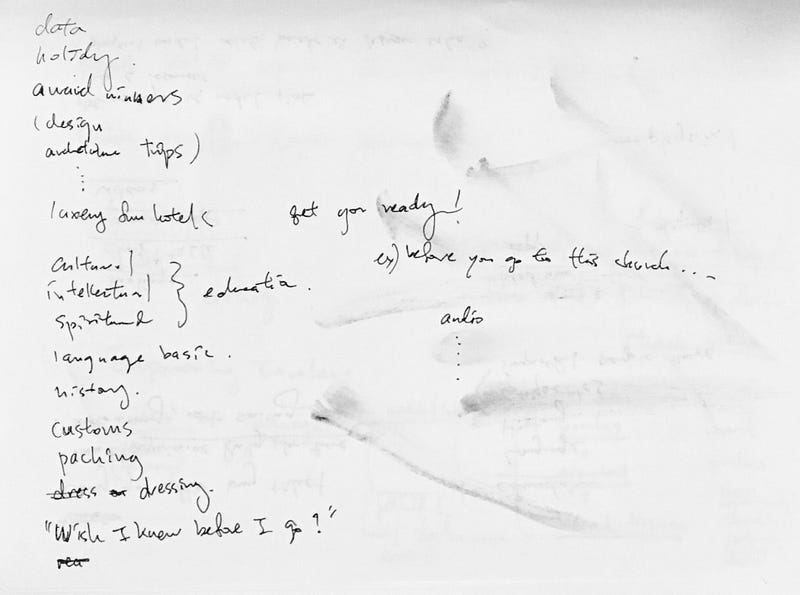 data
holiday.
award winners
(design
architecture trips)
luxury fun hotels
get you ready!
cultural
intellectual
spiritual
education.
ex) before you go to this church...
audio
language basic.
history.
customs
packing
dress or dressing.
"Wish I knew before I go?"